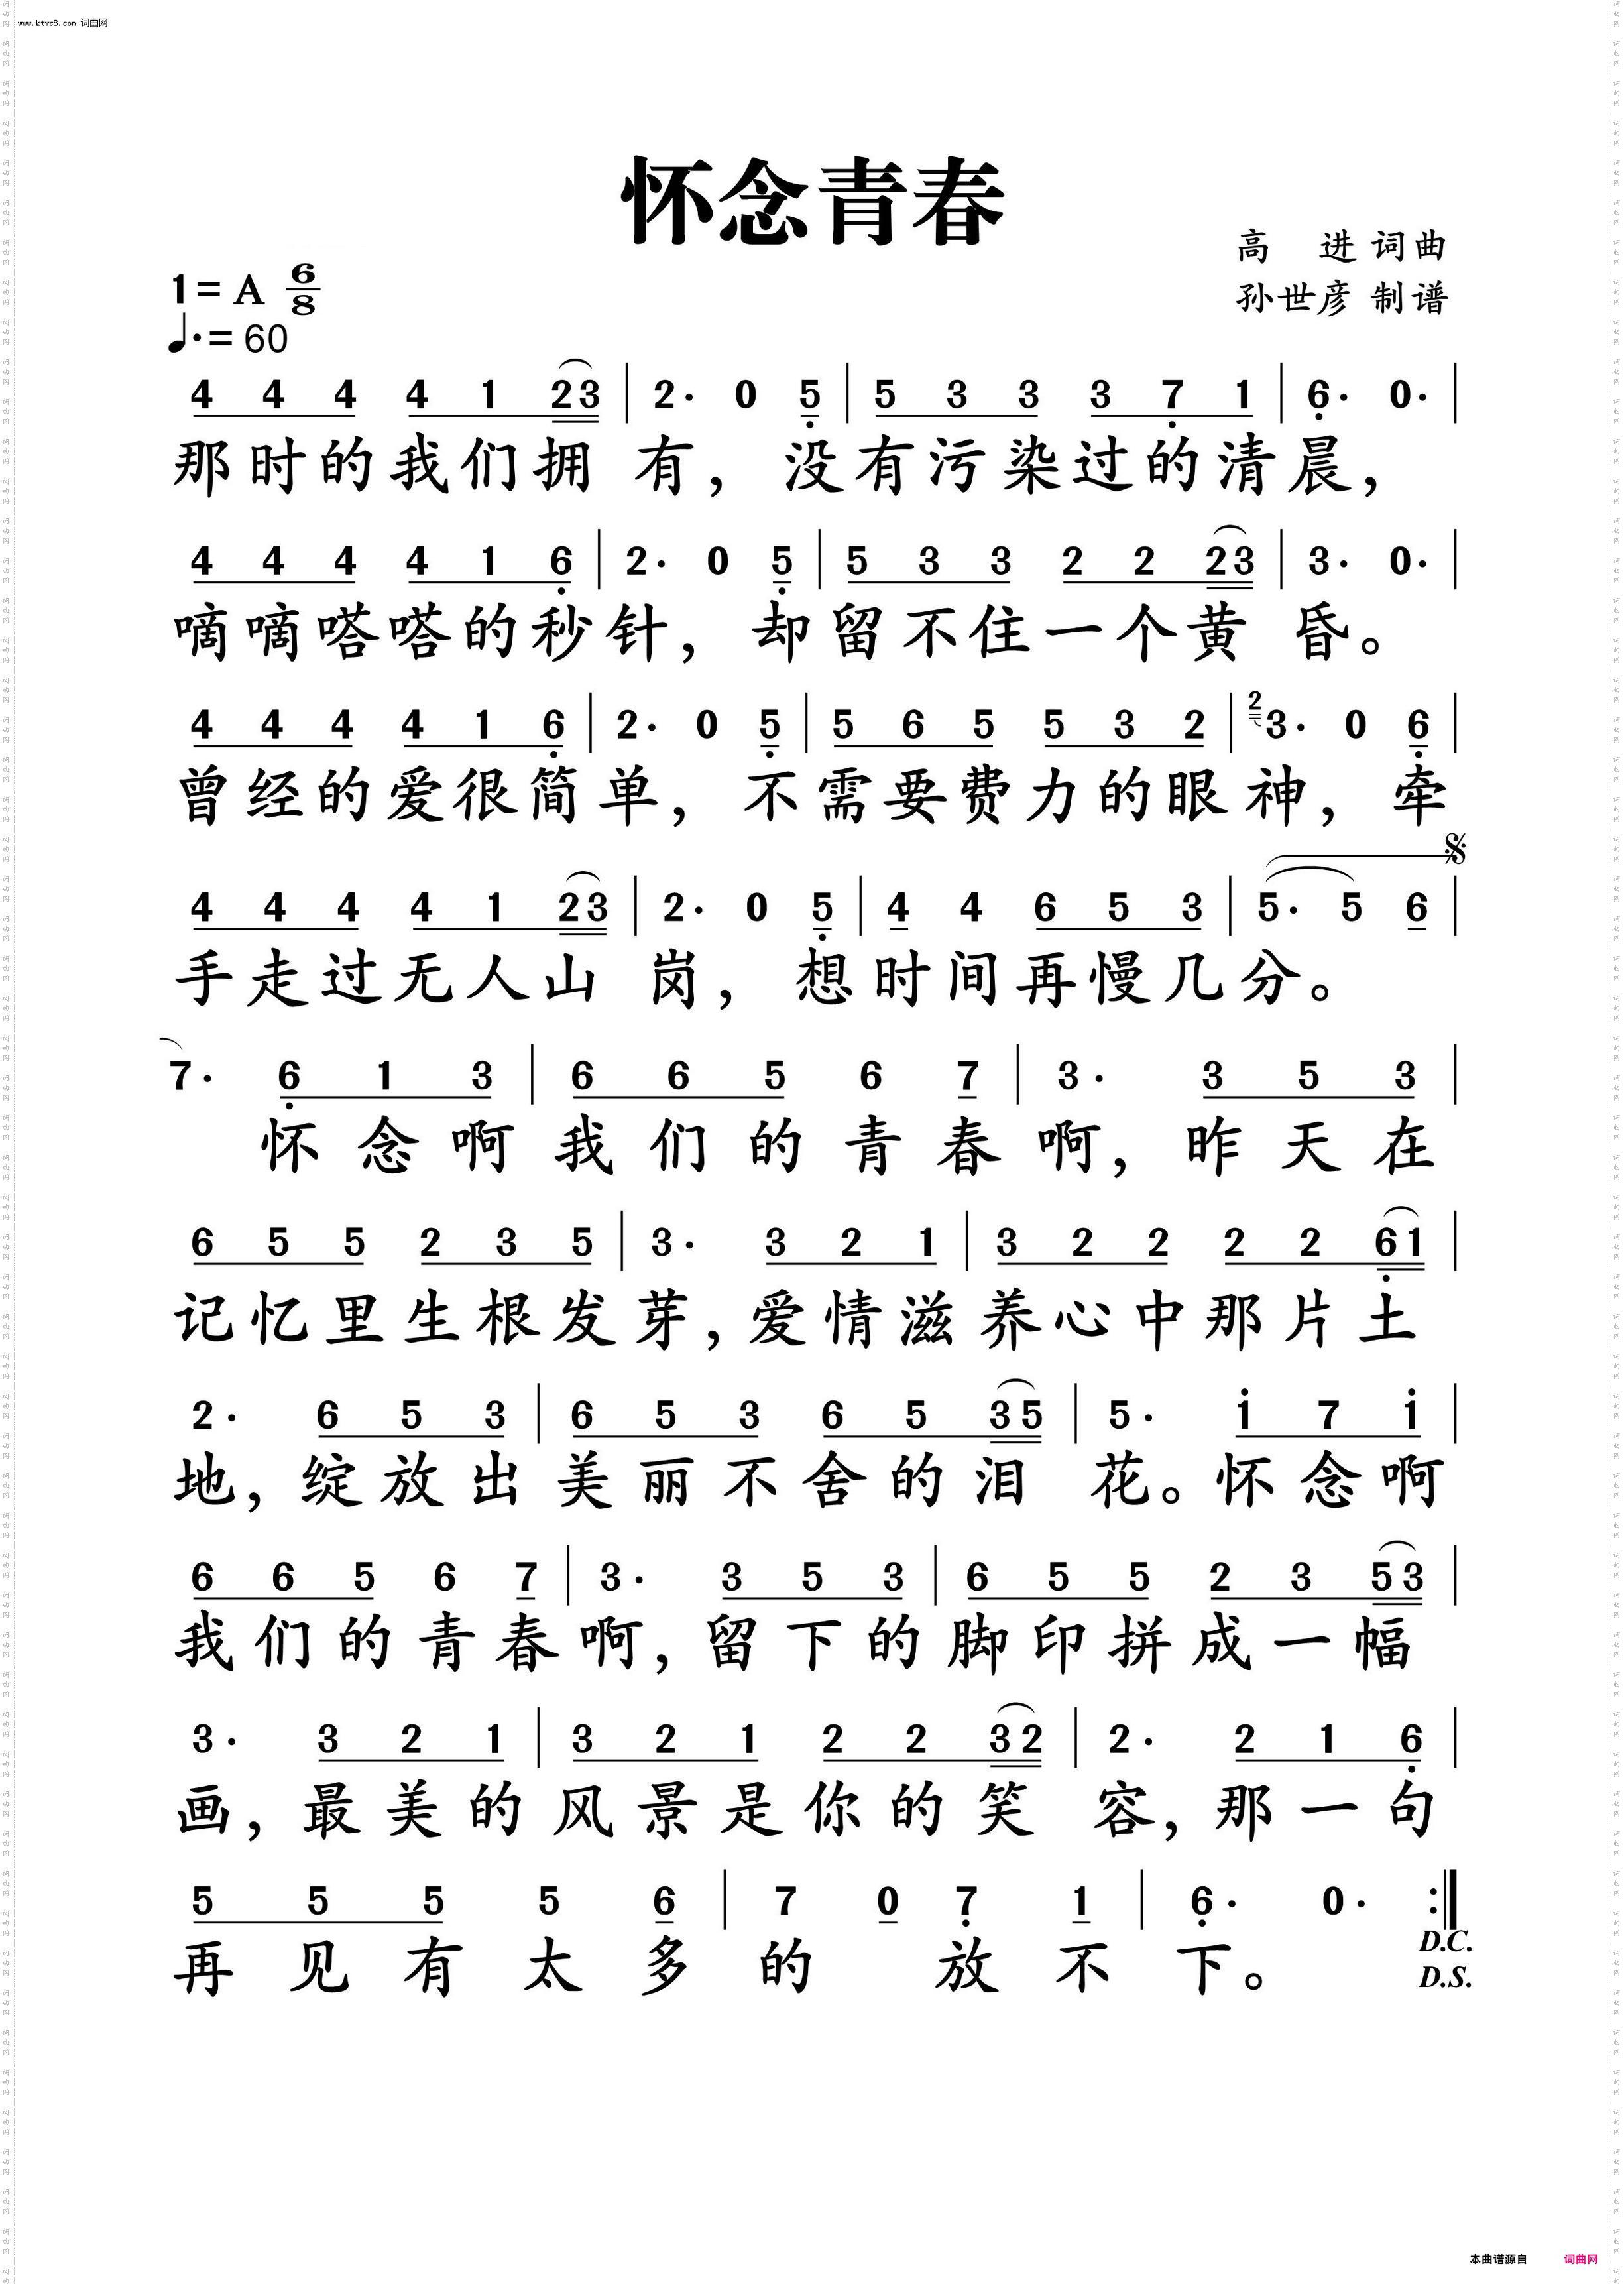 www.ktvc8.com 词曲网
怀念青春
高 进 词曲
孙世彦 制谱
1= A 6/8
♩. = 60
4 4 4 4 1 2 3 | 2· 0 5 | 5 3 3 3 7 1 | 6· 0· |
那时的我们拥 有， 没有污染过的清晨，
4 4 4 4 1 6 | 2· 0 5 | 5 3 3 2 2 2 3 | 3· 0· |
嘀嘀嗒嗒的秒针， 却留不住一个黄 昏。
4 4 4 4 1 6 | 2· 0 5 | 5 6 5 5 3 2 | 2 3· 0 6 |
曾经的爱很简单， 不需要费力的眼神， 牵
4 4 4 4 1 2 3 | 2· 0 5 | 4 4 6 5 3 | 5· 5 6 |
手走过无人山 岗， 想时间再慢几分。
7· 6 1 3 | 6 6 5 6 7 | 3· 3 5 3 |
怀念啊我们的青春啊， 昨天在
6 5 5 2 3 5 | 3· 3 2 1 | 3 2 2 2 2 6 1 |
记忆里生根发芽，爱情滋养心中那片土
2· 6 5 3 | 6 5 3 6 5 3 5 | 5· 1 7 1 |
地，绽放出美丽不舍的泪 花。怀念啊
6 6 5 6 7 | 3· 3 5 3 | 6 5 5 2 3 5 3 |
我们的青春啊，留下的脚印拼成一幅
3· 3 2 1 | 3 2 1 2 2 3 2 | 2· 2 1 6 |
画，最美的风景是你的笑 容，那一句
5 5 5 5 6 | 7 0 7 1 | 6· 0· :|
再见有太多的 放不下。
D.C.
D.S.
本曲谱源自 词曲网